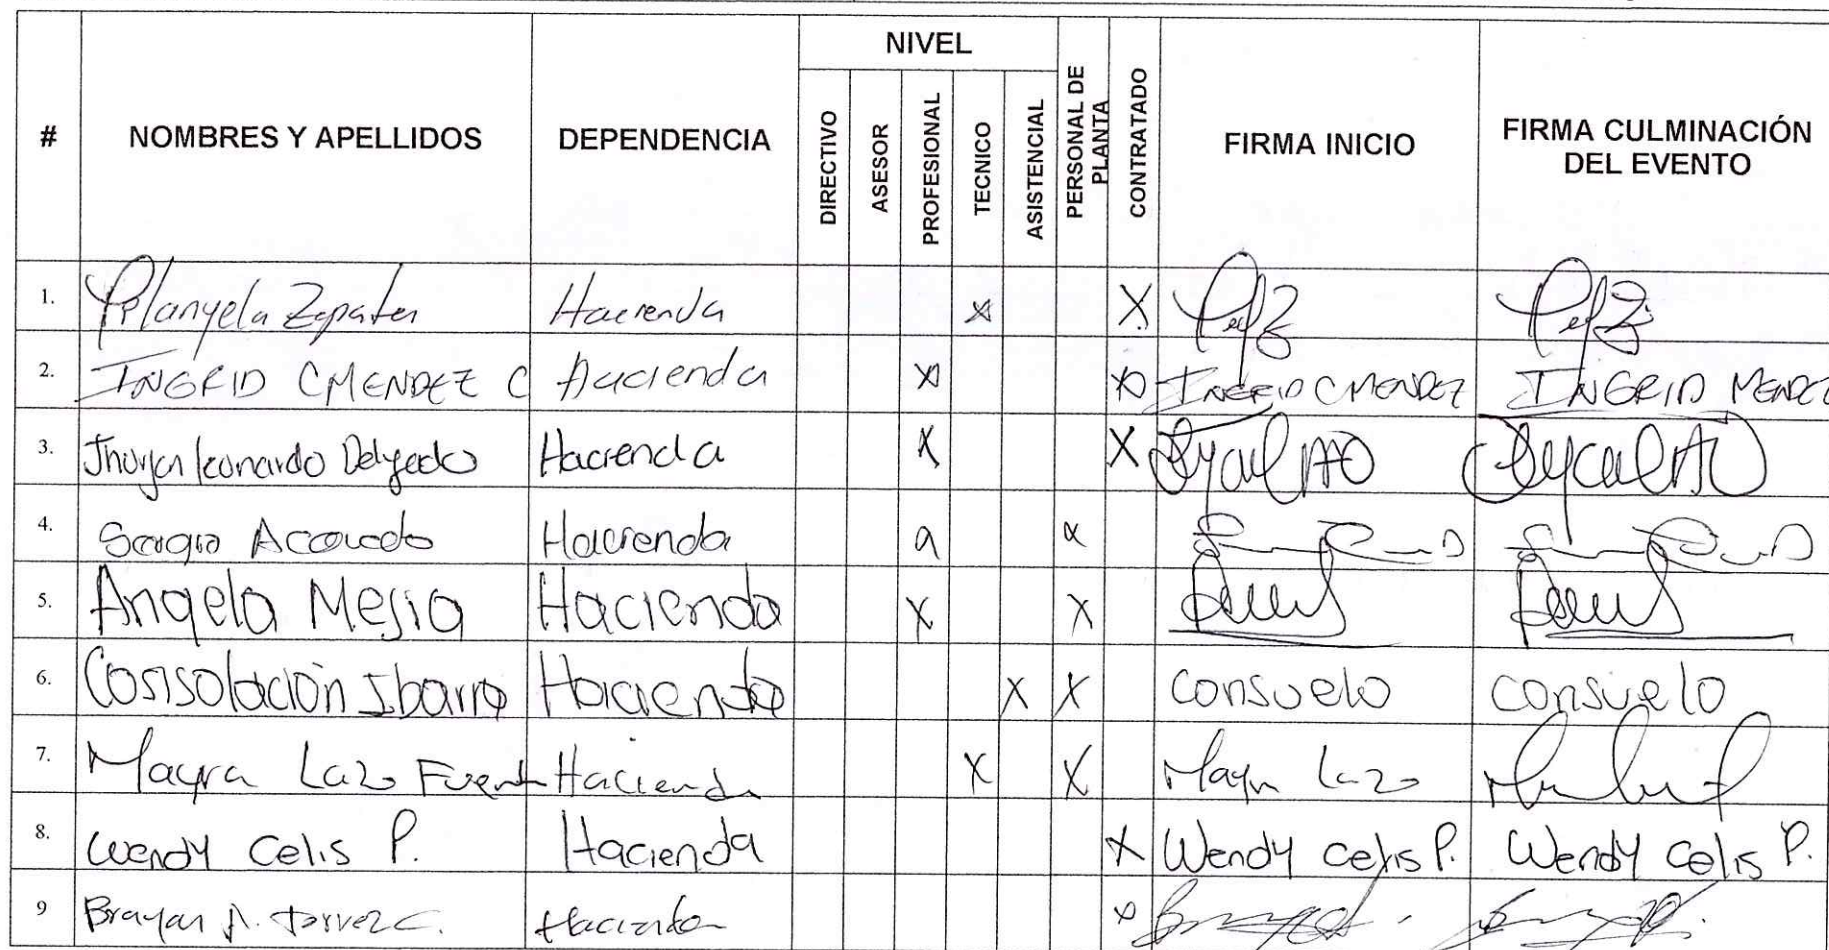 NIVEL
# NOMBRES Y APELLIDOS DEPENDENCIA DIRECTIVO ASESOR PROFESIONAL TECNICO ASISTENCIAL PERSONAL DE PLANTA CONTRATADO FIRMA INICIO FIRMA CULMINACIÓN DEL EVENTO
1. Zapata Hacienda X X
2. INGRID C MENDEZ C Hacienda X X INGRID C MENDEZ INGRID MENDEZ
3. Leonardo Delgado Hacienda X X
4. Sergio Acevedo Hacienda
5. Angela Mejia Hacienda X X
6. Consolación Ibarra Hacienda X X Consuelo Consuelo
7. Mayra Lazo Fuent Hacienda X X Mayra Lazo
8. Wendy Celis P. Hacienda X Wendy Celis P. Wendy Celis P.
9 Brayan Hacienda X